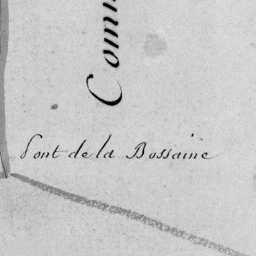 Comm
Pont de la Bossaine